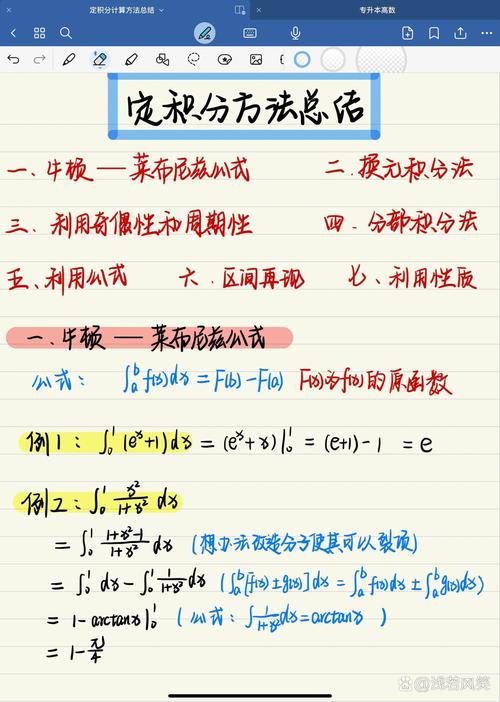 定积分计算方法总结
专升本高数
定积分方法总结
一、牛顿——莱布尼兹公式 二、换元积分法
三、利用奇偶性和周期性 四、分部积分法
五、利用公式 六、区间再现 七、利用性质
一、牛顿——莱布尼兹公式
公式：∫ₐᵇ f(x)dx = F(b)-F(a) F(x)为f(x)的原函数
例1：∫₀¹ (eˣ+1)dx = (eˣ+x)|₀¹ = (e+1)-1 = e
例2：∫₀¹ x²/(1+x²) dx
= ∫₀¹ (1+x²-1)/(1+x²) dx (想办法改造分子使其可以裂项)
= ∫₀¹ dx - ∫₀¹ 1/(1+x²) dx (∫ₐᵇ[f(x)±g(x)]dx = ∫ₐᵇ f(x)dx ± ∫ₐᵇ g(x)dx)
= 1-arctanx|₀¹ (公式：∫1/(1+x²) dx = arctanx)
= 1-π/4
百家号@浅若风笑